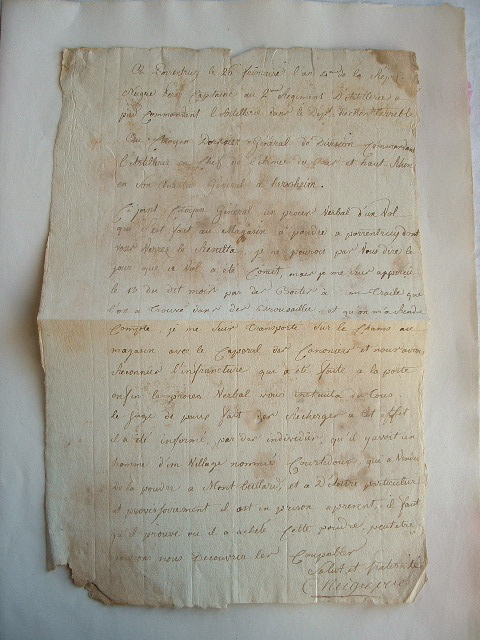 A Porentruy le 26 frimaire l'an 4me de la Repu
Capitaine au 2me Regiment D'artillerie a
pied Commandant l'artillerie dans le Dept du Mont terrible
Au Citoyen General de Division Commandant
l'artillerie en Chef de l'armée du Rhin et haut Rhin
en son quartier General a
Cijoint Citoyen General un proces Verbal d'un Vol
qui est fait au Magasin a poudre a porrentruy dont
vous Verrez le Resultat, je ne pourois pas Vous dire le
jour que ce Vol a été Comit, mais je me suis apperçu
le 13 du dit mois par des Boetes a
l'on a trouvé dans des Brousaille, et qu'on m'a Rendu
Compte je me suis transporté sur le Champ au
magasin avec le Capporal des Canoniers et nous avons
Reconnu l'infracture qui a été faite a la porte
enfin le proces Verbal vous instruita du tous
le juge de paix fait des Recherges a cet effet
il a été informé, par des individus, qu'il y avoit un
homme d'un Village nommé Courtedoux, qui a Vendu
de la poudre a Mont Belliard, et a D'autre particulier
et provisoirement il est en prison apresent, il faut
qu'il prouve ou il a acheté Cette poudre, peut etre
nous Decouvrir les Coupables
Salut et fraternité